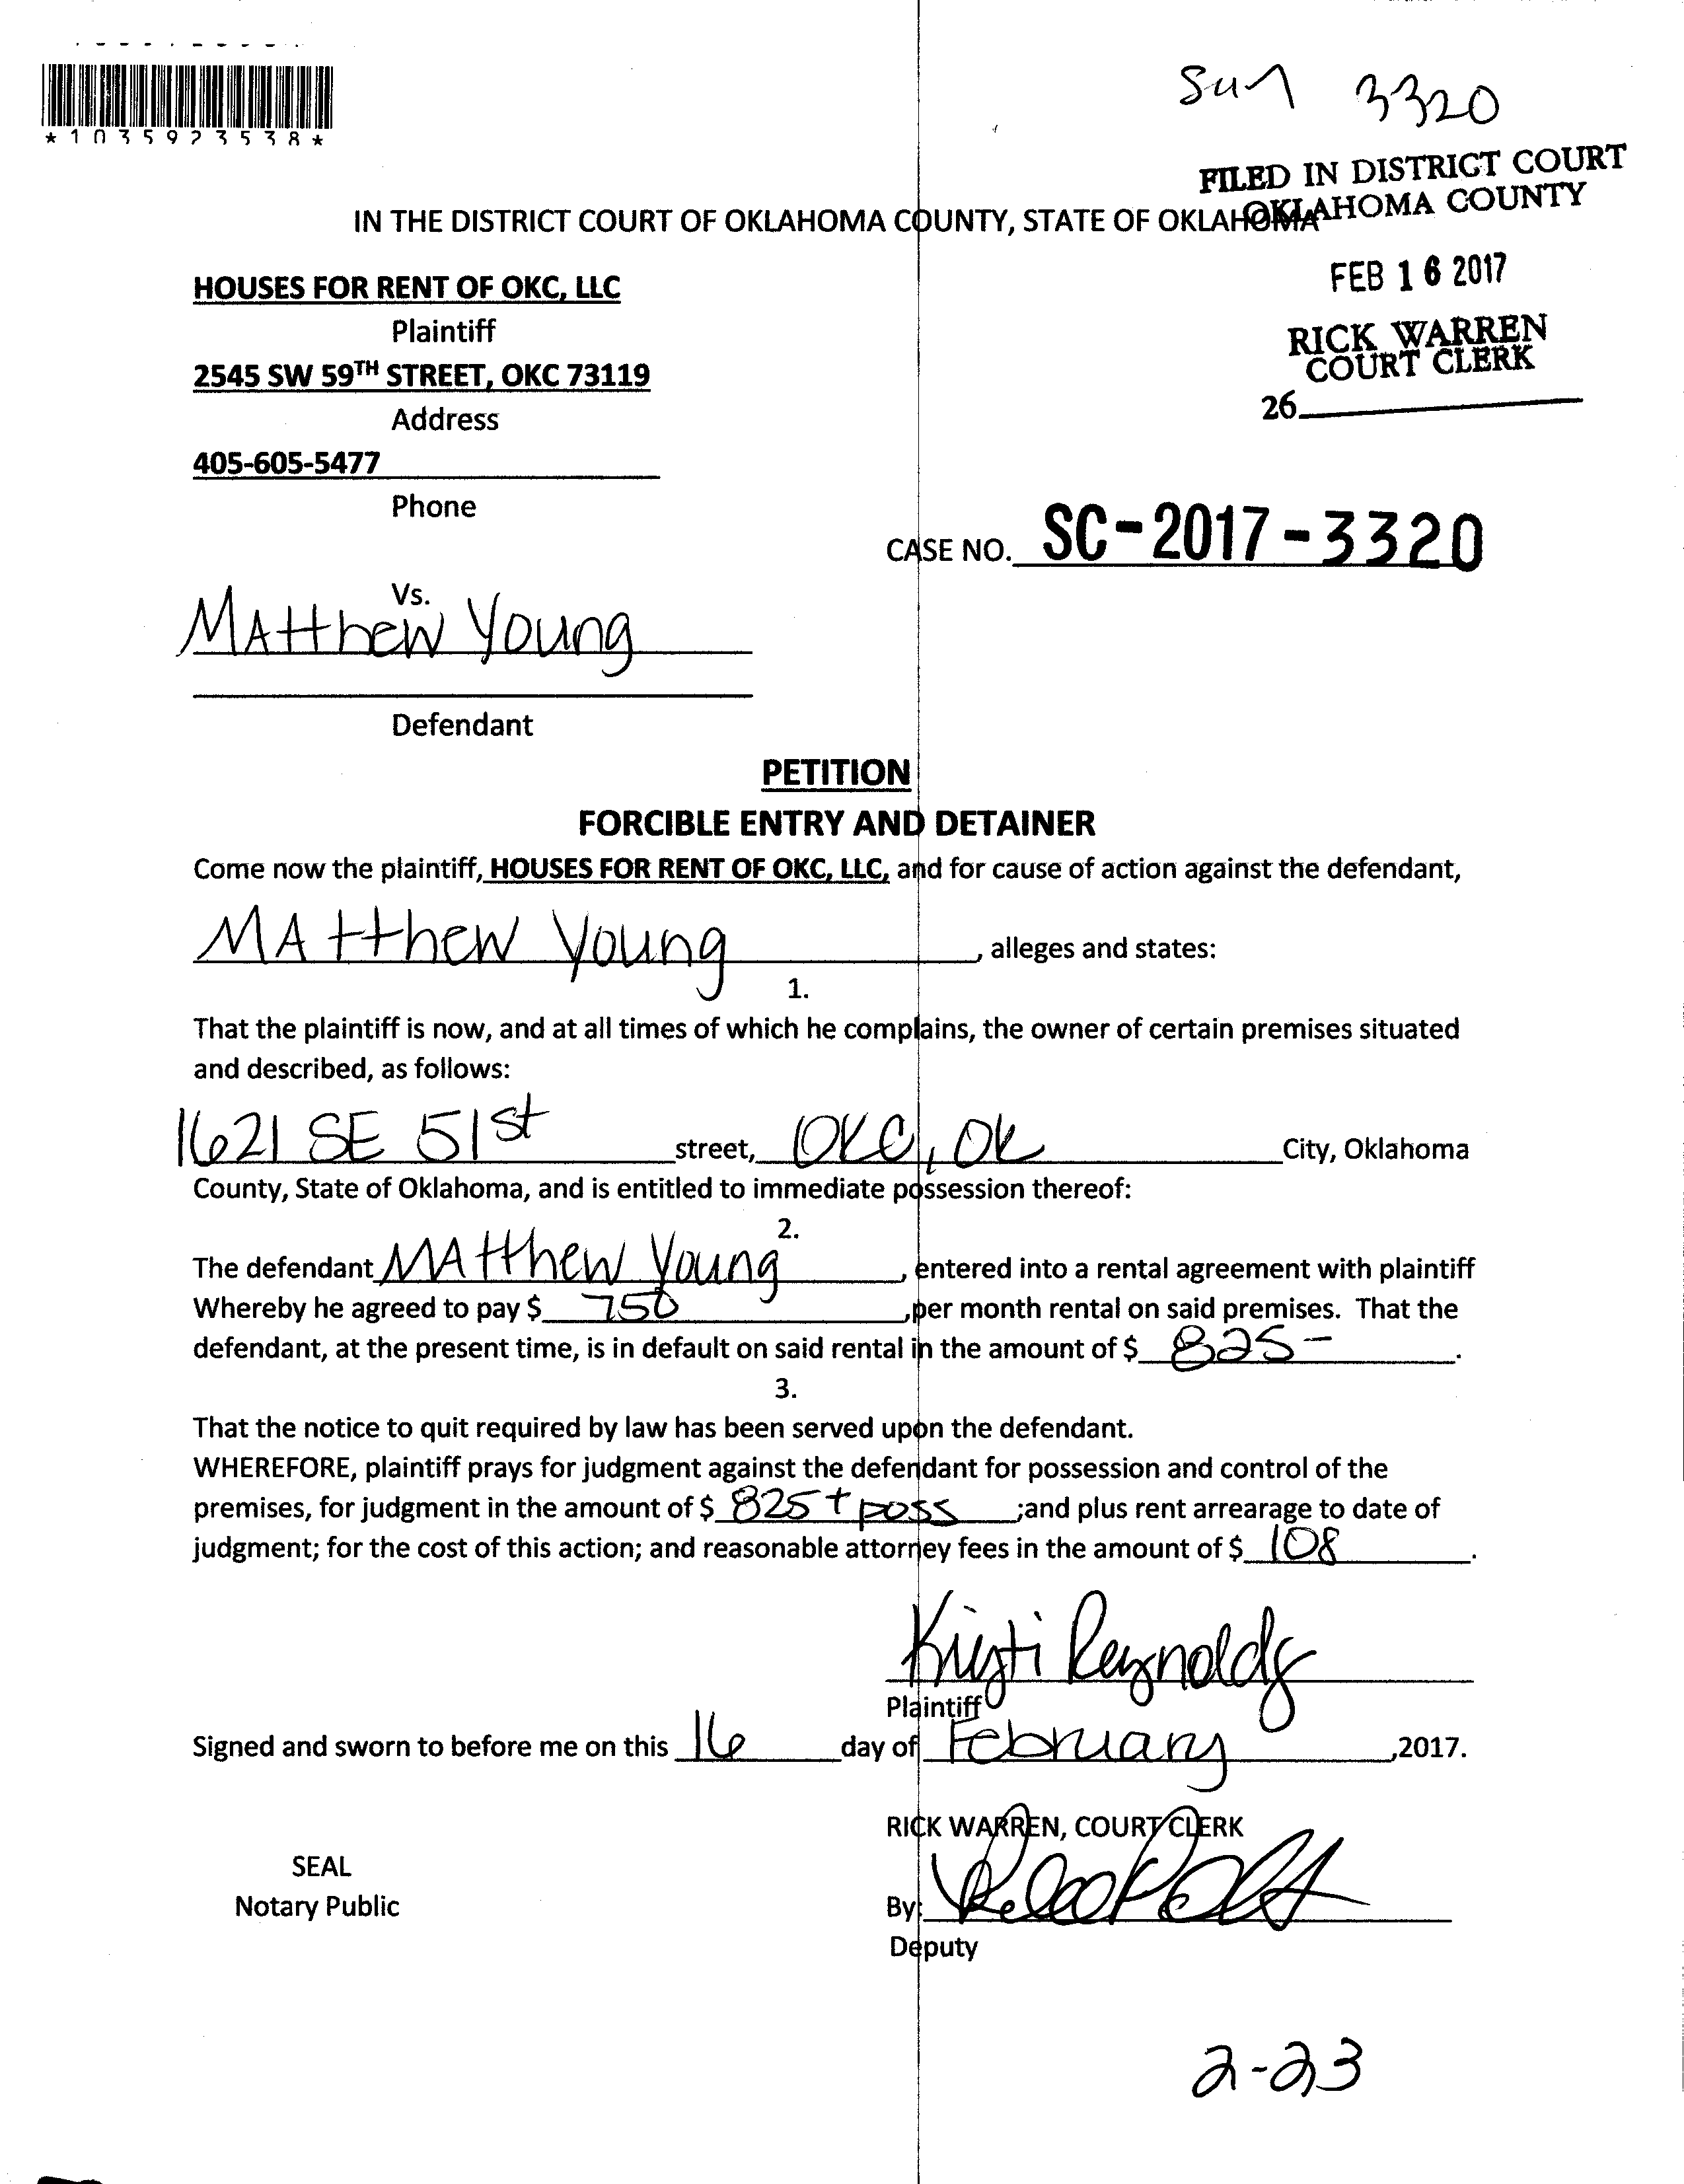 *1035923538*
3320
FILED IN DISTRICT COURT
OKLAHOMA COUNTY
IN THE DISTRICT COURT OF OKLAHOMA COUNTY, STATE OF OKLAHOMA
FEB 16 2017
HOUSES FOR RENT OF OKC, LLC
Plaintiff
RICK WARREN
COURT CLERK
2545 SW 59TH STREET, OKC 73119
26
Address
405-605-5477
Phone
CASE NO. SC-2017-3320
Vs.
MAtthew Young
Defendant
PETITION
FORCIBLE ENTRY AND DETAINER
Come now the plaintiff, HOUSES FOR RENT OF OKC, LLC, and for cause of action against the defendant,
MAtthew Young, alleges and states:
1.
That the plaintiff is now, and at all times of which he complains, the owner of certain premises situated
and described, as follows:
1621 SE 51st street, OKC, OK City, Oklahoma
County, State of Oklahoma, and is entitled to immediate possession thereof:
2.
The defendant MAtthew Young, entered into a rental agreement with plaintiff
Whereby he agreed to pay $ 750 ,per month rental on said premises. That the
defendant, at the present time, is in default on said rental in the amount of $ 825- .
3.
That the notice to quit required by law has been served upon the defendant.
WHEREFORE, plaintiff prays for judgment against the defendant for possession and control of the
premises, for judgment in the amount of $ 825 + poss ;and plus rent arrearage to date of
judgment; for the cost of this action; and reasonable attorney fees in the amount of $ 108 .
Kristi Reynolds
Plaintiff
Signed and sworn to before me on this 16 day of February ,2017.
RICK WARREN, COURT CLERK
SEAL
Notary Public
By:
Deputy
2-23